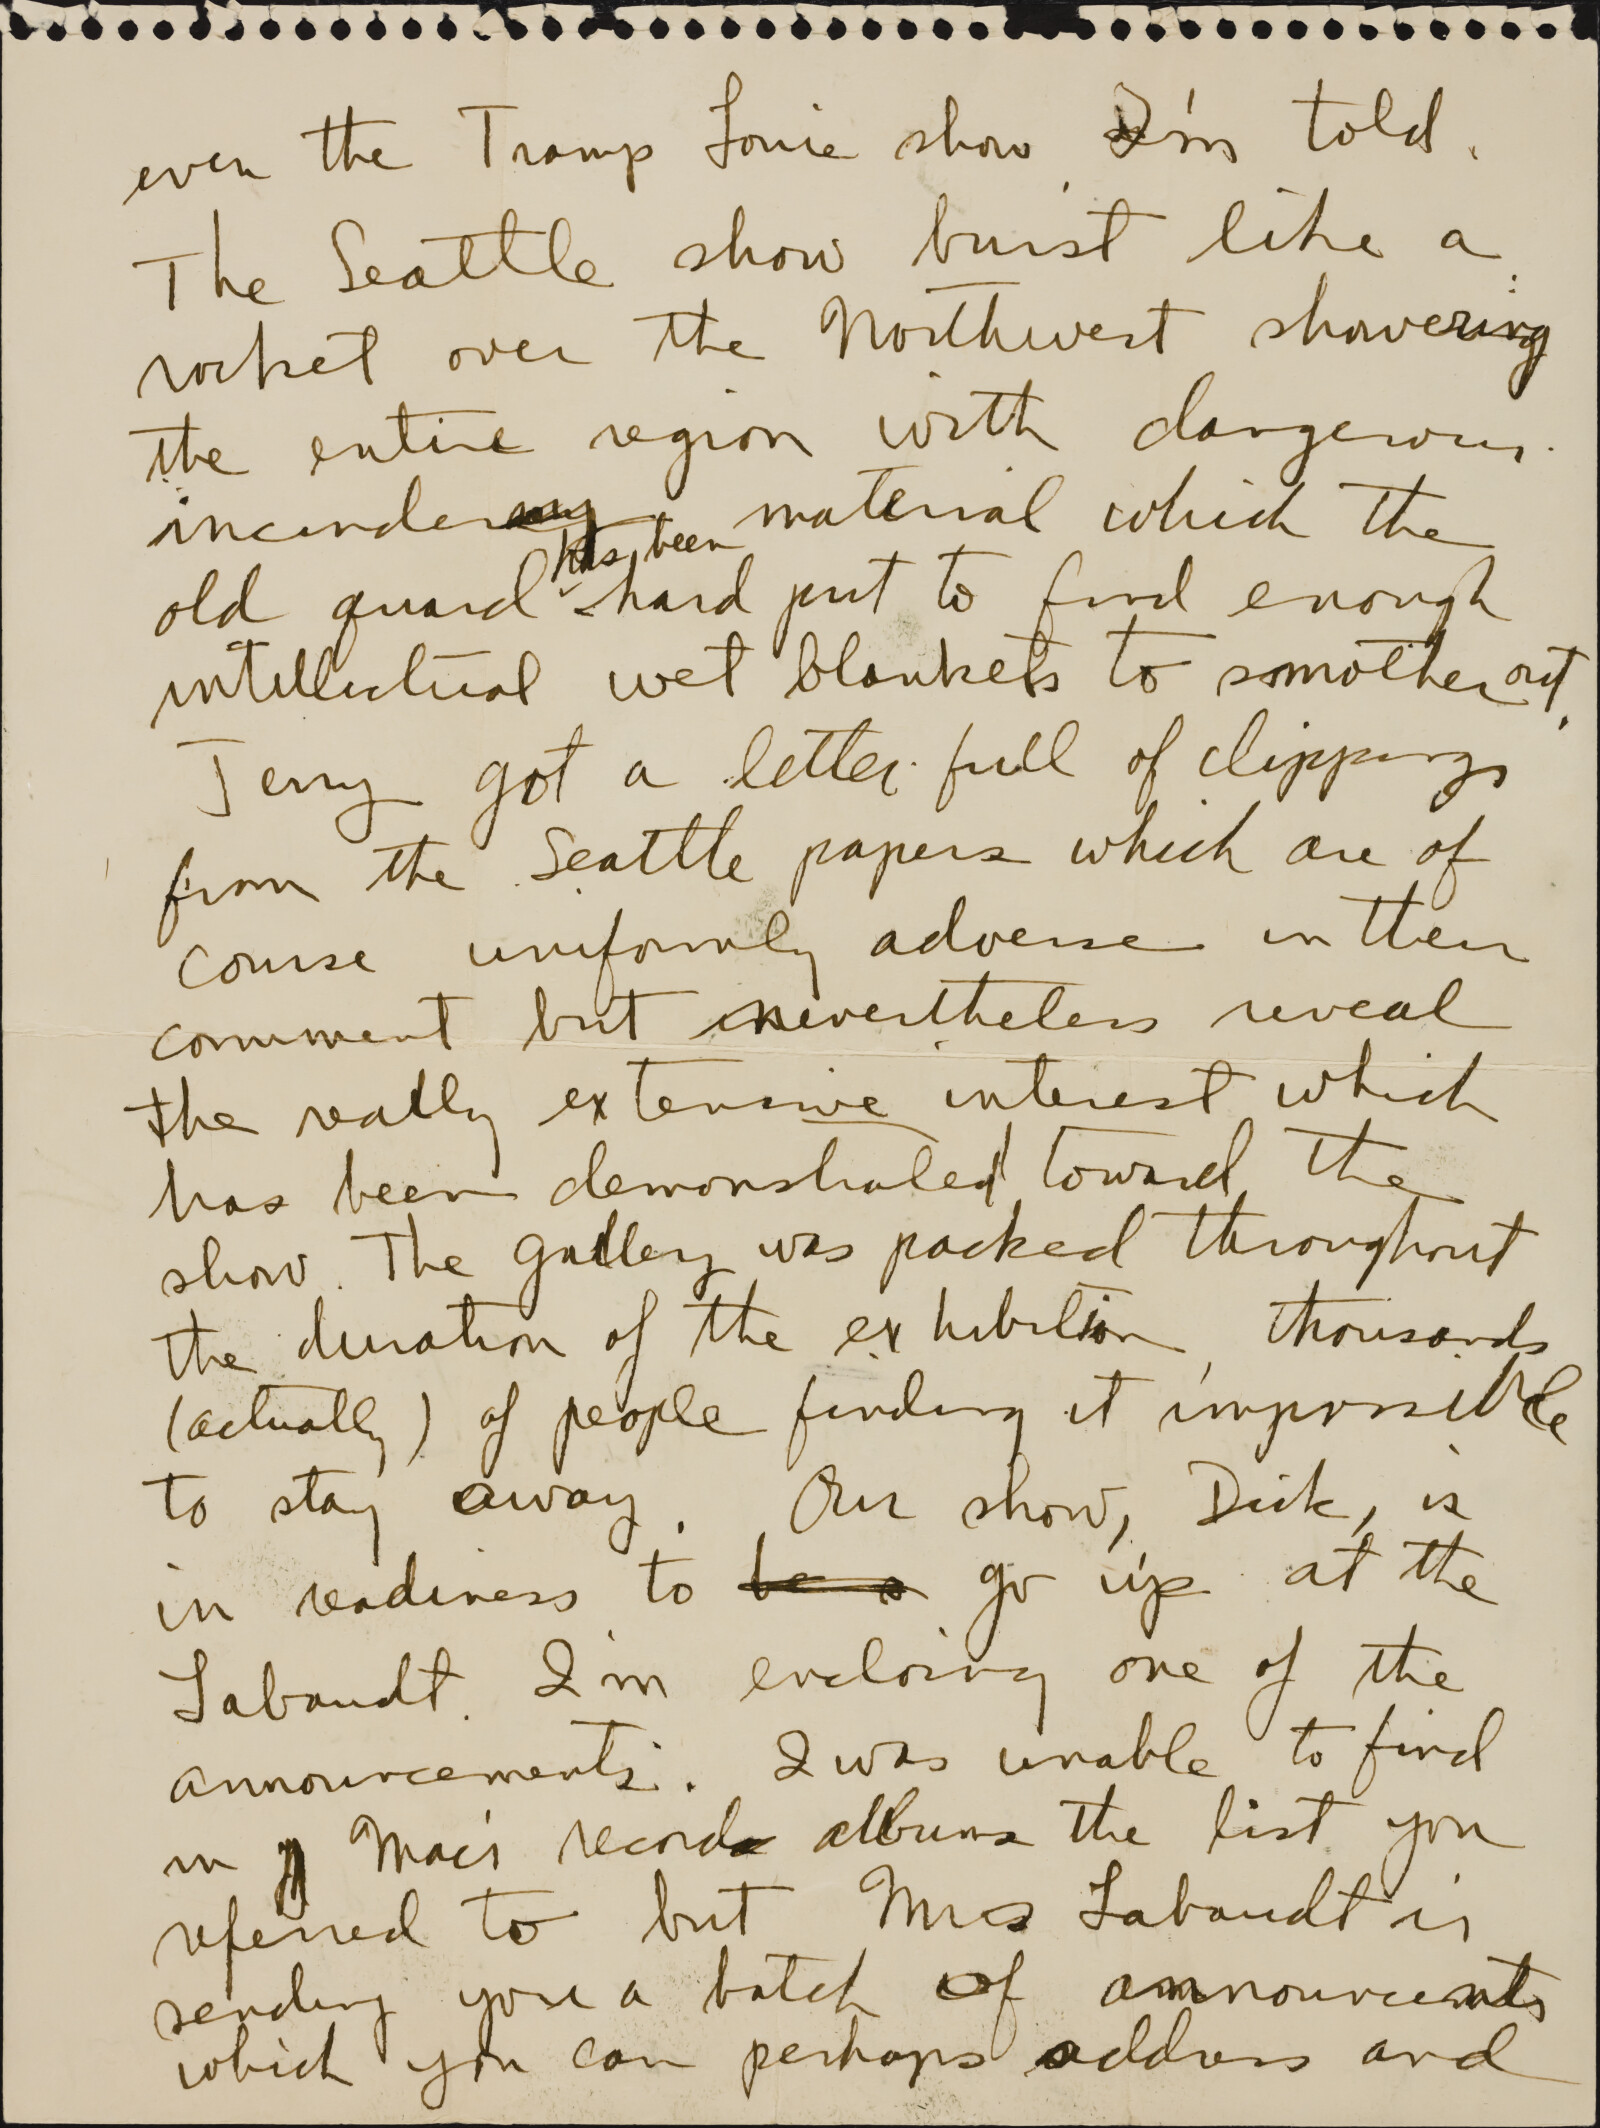 even the Tramp Louie show, I'm told.
The Seattle show burst like a
rocket over the Northwest showering
the entire region with dangerous
incendery material which the
old guard has been hard put to find enough
intellectual wet blankets to smother out.
Jerry got a letter full of clippings
from the Seattle papers which are of
course uniformly adverse in their
comment but nevertheless reveal
the really extensive interest which
has been demonstrated toward the
show. The gallery was packed throughout
the duration of the exhibition, thousands
(actually) of people finding it impossible
to stay away. Our show, Dick, is
in readiness to be a go up at the
Labaudt. I'm enclosing one of the
announcements. I was unable to find
in Mac's record albums the list you
referred to but Mrs Labaudt is
sending you a batch of announcements
which you can perhaps address and